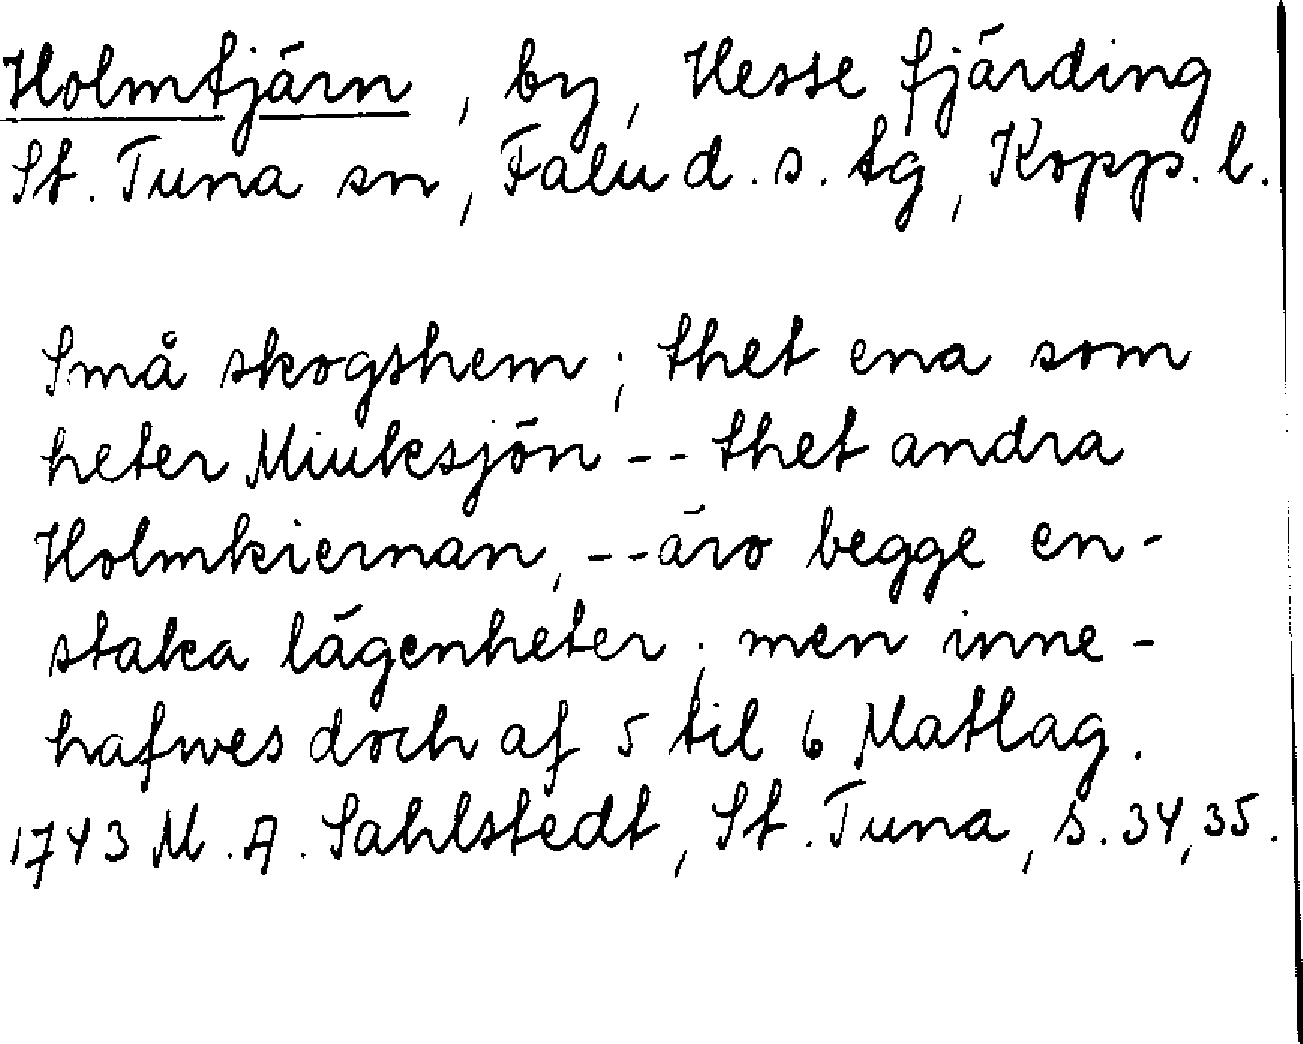 Holmtjärn, by, Hesse fjärding
St. Tuna sn, Falu d. s. tg, Kopps. l.
Små skogshem; thet ena som
heter Miuksjön -- thet andra
Holmkiernan, -- äro begge en-
staka lägenheter; men inne-
hafwes doch af 5 til 6 Matlag.
1743 M. A. Sahlstedt, St. Tuna, s. 34, 35.